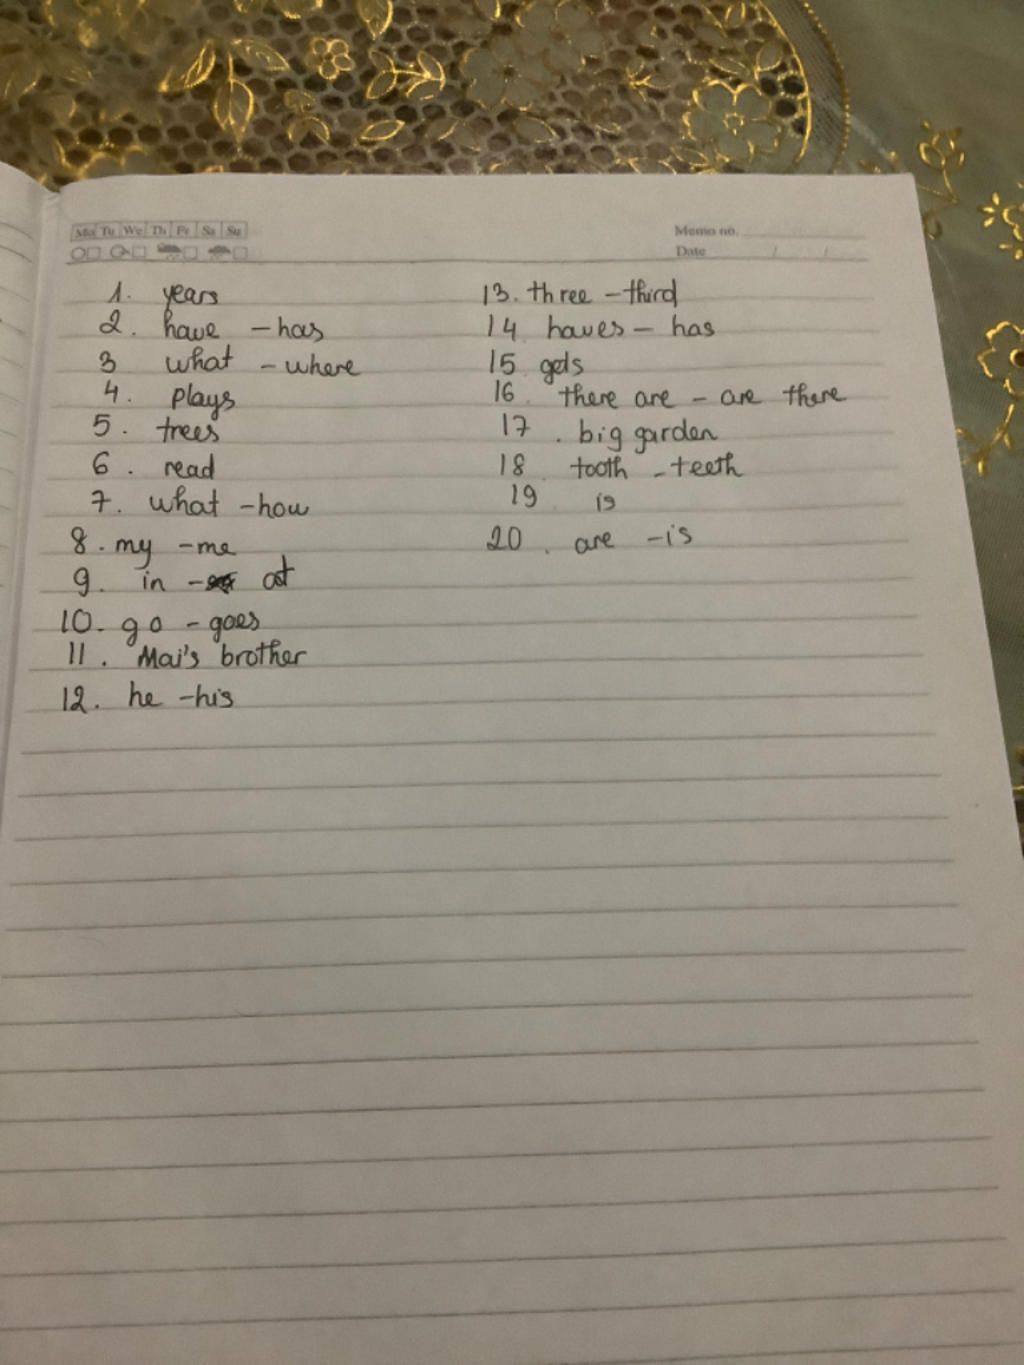 Mo Tu We Th Fr Sa Su
Memo no.
Date / /
1. years
2. have - has
3 what - where
4. plays
5. trees
6. read
7. what - how
8. my - me
9. in - at
10. go - goes
11. Mai's brother
12. he - his
13. three - third
14 haves - has
15 gets
16. there are - are there
17. big garden
18 tooth - teeth
19 is
20. are - is